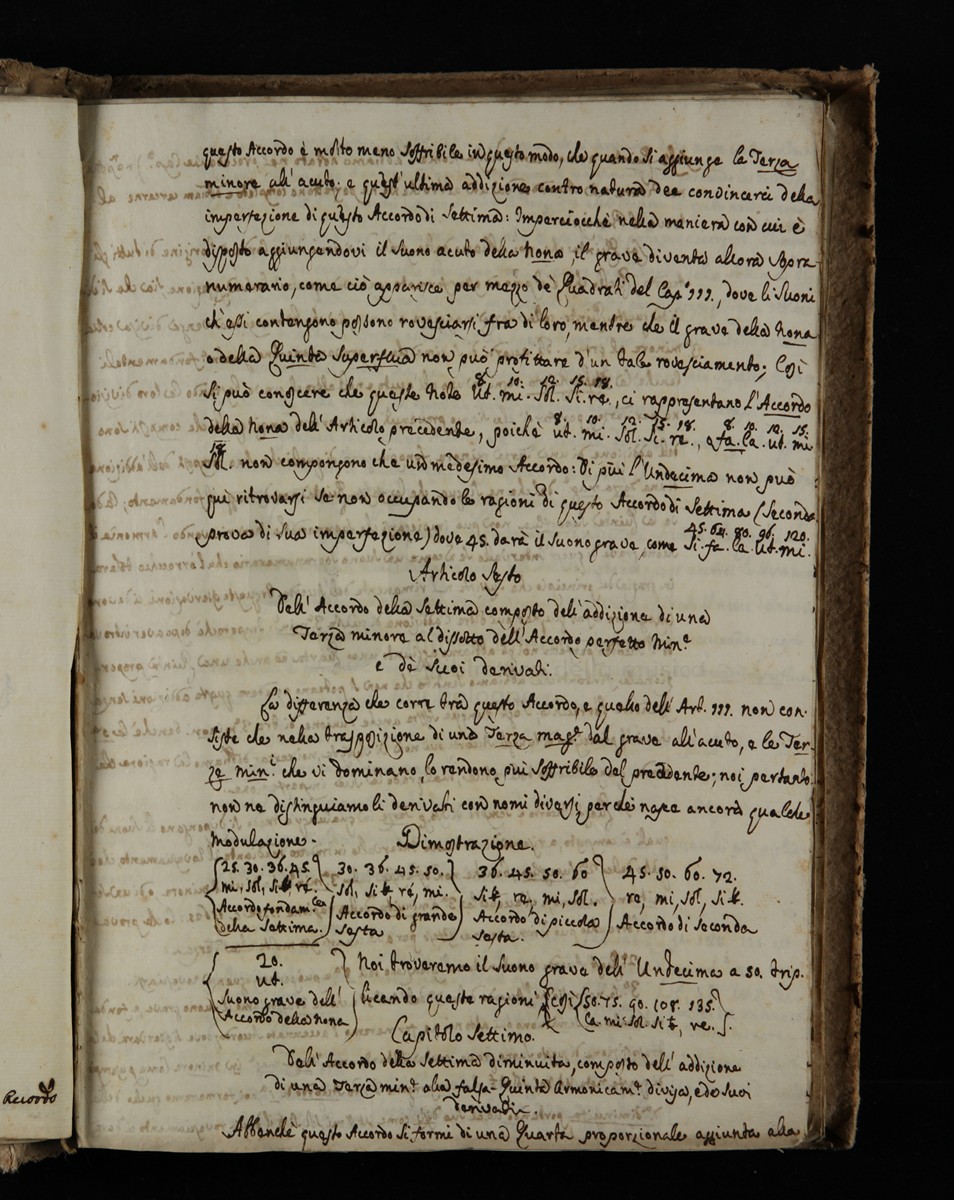 questo Accordo è molto meno soffribile in questo modo, che quando si aggiunge la Terza
minore all' acuto; e quest' ultima addizione contro natura dee convincerci della
imperfezione di questo Accordo di Settima: Imperciocchè nella maniera con cui è
disposto aggiungendovi il suono acuto della Nona, il grave diventa allora sopra
numerario, come ciò apparisce per mezzo dè Quadrati del Cap.º III., dove li suoni
ch' essi contengono possono rovesciarsi fra di loro, mentre che il grave della Nona
o della Quinta Superflua non può profittare d' un tale rovesciamento; Così
8. 10. 12. 15. 18.
si può conoscere che queste note Ut. mi. Sol. Si. re., ci rappresentano l' Accordo
8. 10. 12. 15. 18. 8. 10. 12. 15.
della Nona dell' Articolo precedente, poichè ut. mi. Sol. Si. re., e fa. la. ut. mi
18.
Sol. non compongono che un medesimo Accordo: Di più l' Undecima non può
quì ritrovarsi se non occupando le ragioni di questo Accordo di Settima (Seconda
45. 64. 80. 96. 120.
prova di sua imperfezione) dove 45. darà il suono grave, come Si. fa. la. ut. mi.
Articolo Sesto
Dell' Accordo della Settima composto dell' addizione di una
Terza minore al dissotto dell' Accordo perfetto Min.e
e dè Suoi derivati.
La differenza che corre trà questo Accordo, e quello dell' Art. III. non con-
siste che nella trasposizione di una Terza mag.e dal grave all' acuto, e le Ter-
ze min.i che vi dominano lo rendono più soffribile del precedente; noi pertanto
non ne distinguiamo li derivati con nomi diversi, perchè nasce ancora qualche
Modulazione. Dimostrazione.
25. 30. 36. 45. 30. 36. 45. 50. 36. 45. 50. 60 45. 50. 60. 72.
mi, sol, si♮ ré. Sol, si♮ ré, mi. Si♮, re, mi, sol. re, mi, sol, si♮.
Accordo fondam.le Accordo di grande Accordo di piccola Accordo di seconda
della Settima. Sesta Sesta.
20. Noi troveremo il suono grave dell' Undecima a 50. trip-
ut. licando queste ragioni così 50. 75. 90. 108. 135.
Suono grave dell' la. mi. sol. si♮, re.
Accordo della Nona
Capitolo Settimo.
Dell' Accordo della Settima diminuita, composto dell' addizione
di una Terza min.e alla falsa-Quinta Armonicam.e divisa, e dè suoi
derivati.
Abbenchè questo Accordo si formi di una Quarta proporzionale aggiunta alla